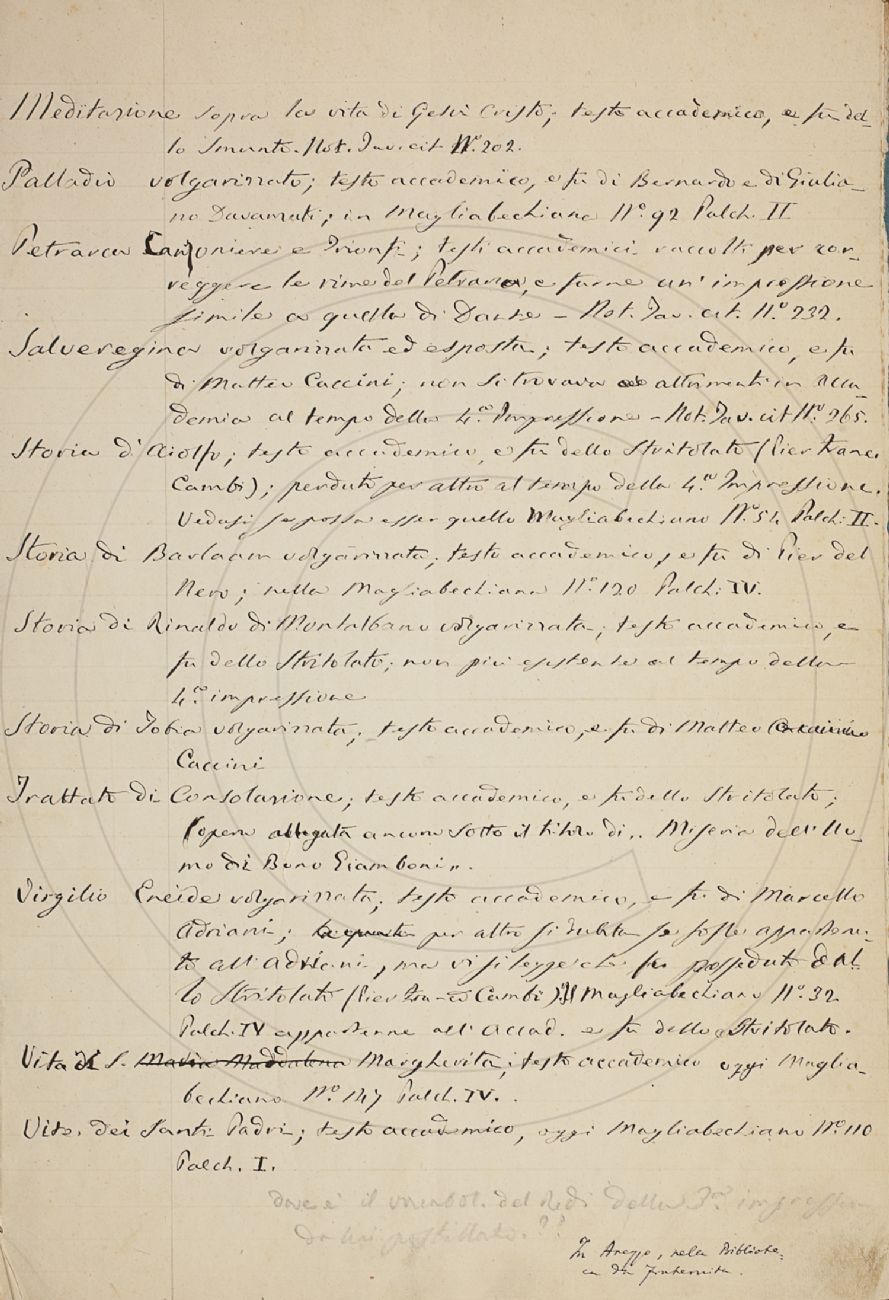 Meditazione sopra la vita di Gesù Cristo; testo accademico, e fu del-
lo Smunto. Not. Tav. cit. N.º 202.
Palladio volgarizzato; testo accademico, e fu di Bernardo e di Giulia-
no Davanzati; in Magliabechiana N.º 92 Palch. II
Petrarca Canzoniere e Trionfi; testi accademici raccolti per cor-
reggere le rime del Petrarca, e farne un' impressione
simile a quella di Dante – Not. Tav. cit. N.º 232.
Salveregina volgarizzata ed esposta; testo accademico, e fu
di Matteo Caccini; non si trovava altrimenti in Acca-
demia al tempo della 4.ª Impressione – Not. Tav. cit N.º 265.
Storia d' Aiolfo; testo accademico, e fu dello Stritolato (Pier Franc.
Cambi); perduto per altro al tempo della 4.ª Impressione.
Vedasi se possa esser quello Magliabechiano N.º 51, Palch. II.
Storia di Barlaam volgarizzata; testo accademico, e fu di Pier del
Nero; nella Magliabechiana N.º 120 Palch. IV.
Storia di Rinaldo di Montalbano volgarizzata; testo accademico, e
fu dello Stritolato; non più esistente al tempo della
4.ª impressione
Storia di Tobia volgarizzata; testo accademico, e fu di Matteo
Caccini
Trattato di Consolazione; testo accademico, e fu dello Stritolato;
(opera allegata ancora sotto il titolo di „ Miseria dell' Uo-
mo di Bono Giamboni„.
Virgilio Eneide volgarizzata; testo accademico, e fu di Marcello
Adriani; per altro si dubita se fosse appartenu-
to all' Adriani, ma vi si legge che fu posseduto dal-
lo Stritolato (Pier Fran-co Cambi) Il Magliabechiano N.º 32
Palch. IV appartenne all' Accad. e fu dello Stritolato.
Vita di S. Maria Maddalena Margherita; testo accademico oggi Maglia-
bechiano N.º 147 Palch. IV.
Vite dei Santi Padri; testo accademico, oggi Magliabechiano N.º 110
Palch. I.
dove è il vocabol. del Redi della 3.ª impressione
da lui postillato.??
In Arezzo, nella Bibliote-
ca di Fraternita.